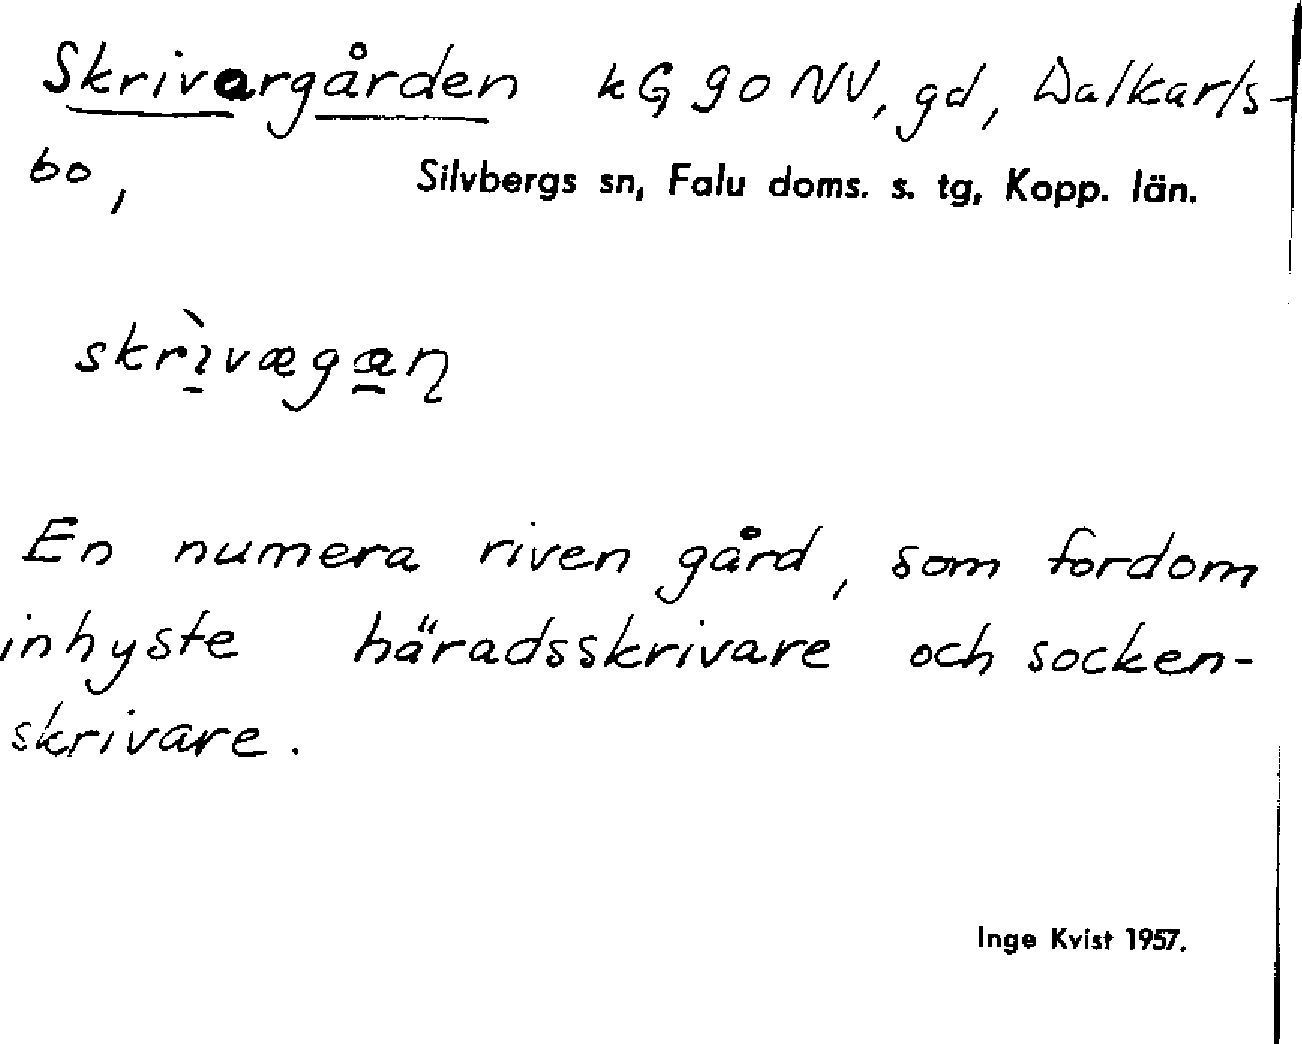 Skrivargården kG 90 NV, gd, Dalkarls-
bo, Silvbergs sn, Falu doms. s. tg, Kopp. län.
skrìvægæɳ
En numera riven gård, som fordom
inhyste häradsskrivare och socken-
skrivare.
Inge Kvist 1957.